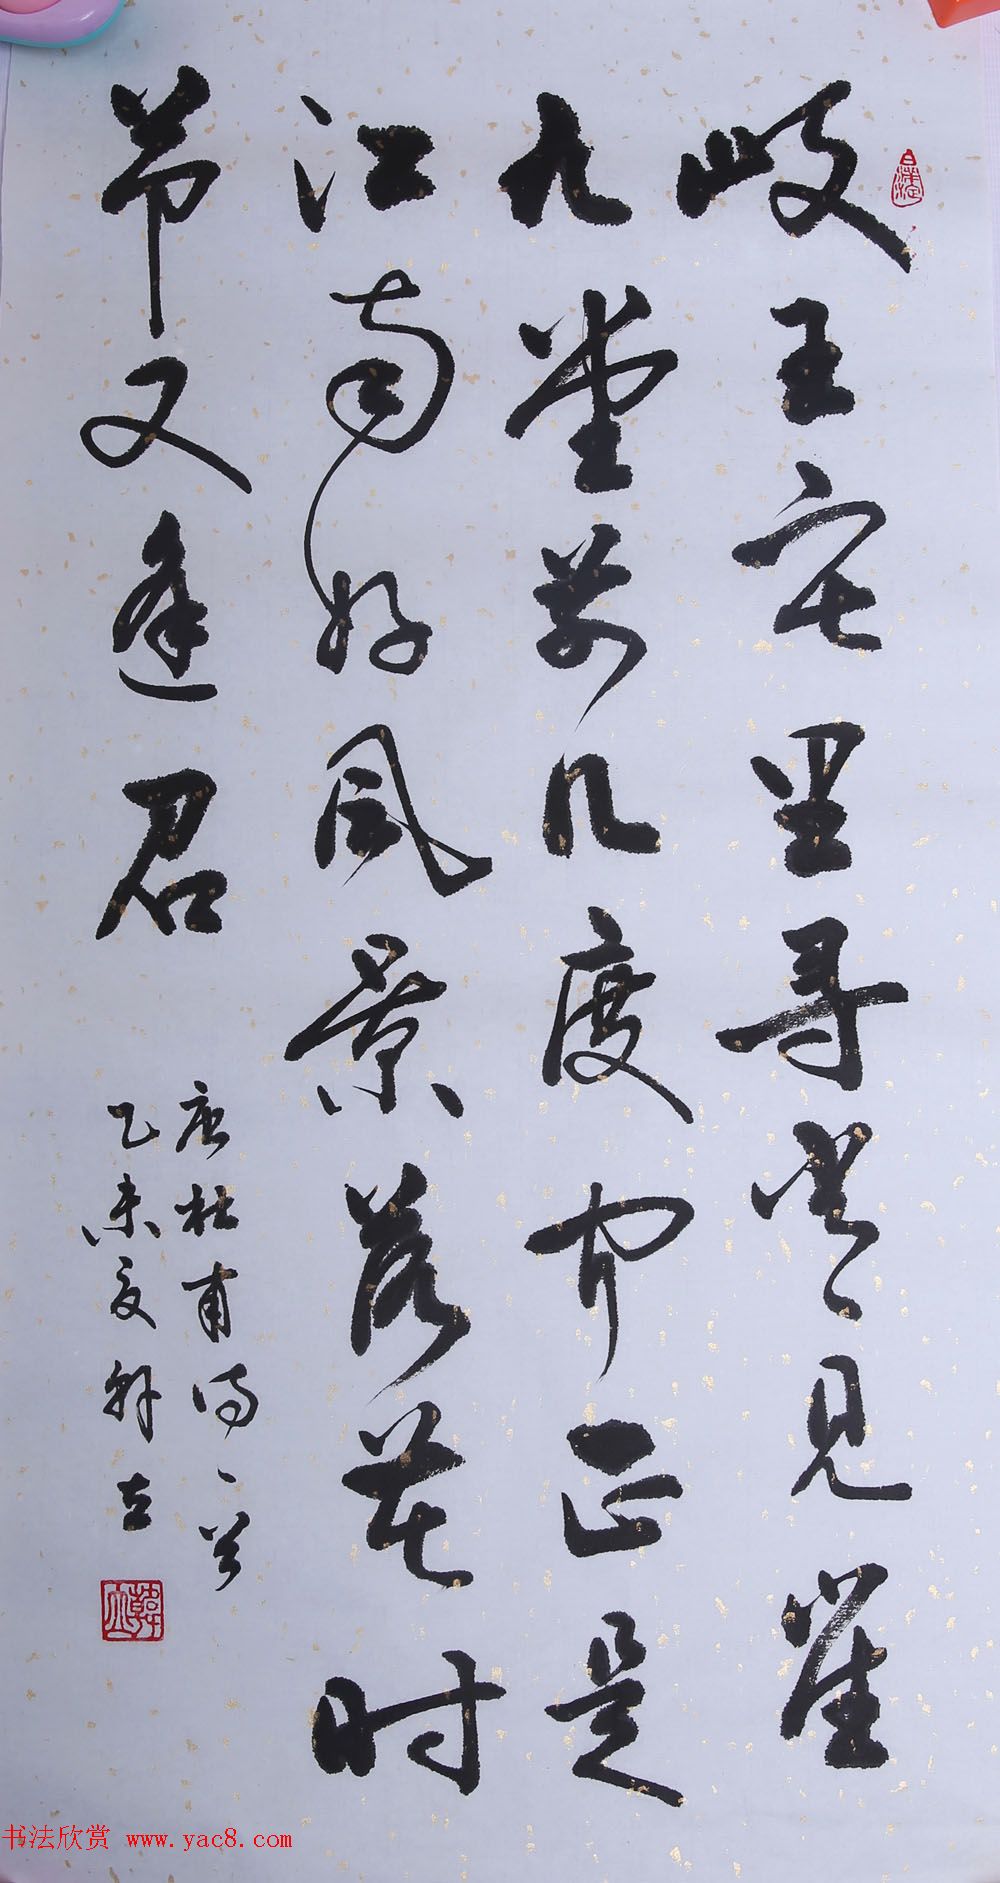 岐王宅里寻常见崔
九堂前几度闻正是
江南好风景落花时
节又逢君
唐杜甫诗一首
乙未夏韩立
书法欣赏 www.yac8.com